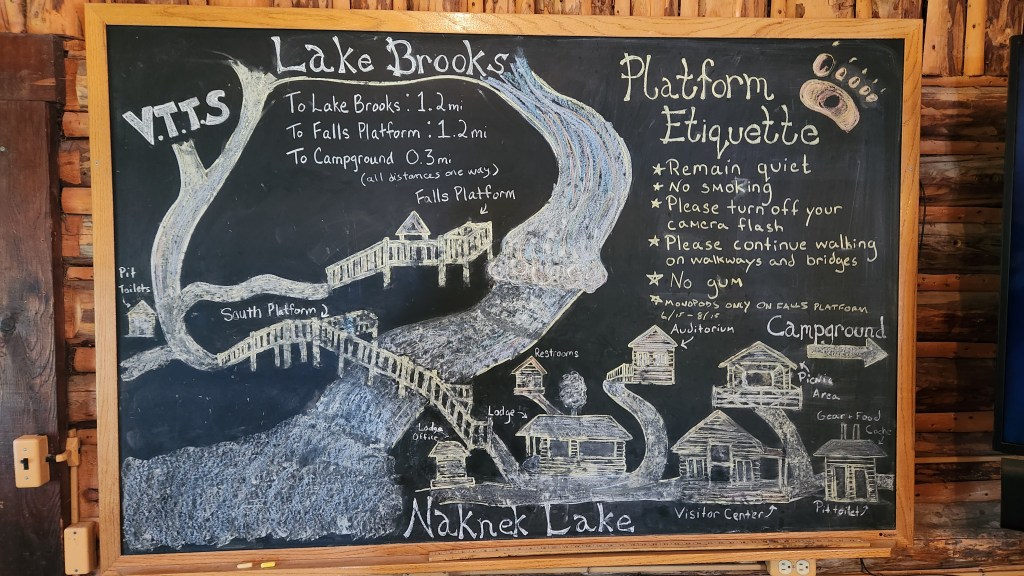 Lake Brooks
V.T.T.S
To Lake Brooks : 1.2mi
To Falls Platform : 1.2 mi
To Campground 0.3mi
(all distances one way)
Falls Platform
Pit
Toilets
South Platform
Platform
Etiquette
Remain quiet
No smoking
Please turn off your
camera flash
Please continue walking
on walkways and bridges
No gum
MONOPODS ONLY ON FALLS PLATFORM
6/15-8/15
Auditorium
Campground
Restrooms
Picnic
Area
Lodge
Lodge
Office
Gear + Food
Cache
Naknek Lake
Visitor Center
Pit toilet